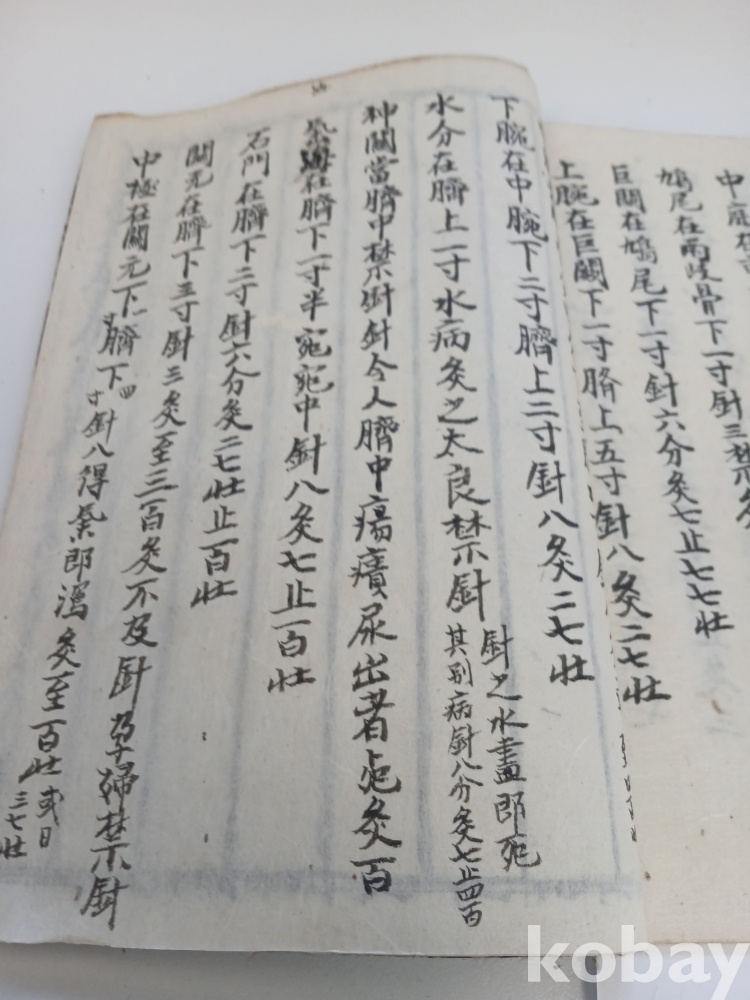 鳩尾在兩歧骨下一寸針三禁灸
巨闕在鳩尾下一寸針六分灸七止七七壯
上腕在巨闕下一寸臍上五寸針八灸二七壯
下腕在中腕下二寸臍上二寸針八灸二七壯
水分在臍上一寸水病灸之太良禁針
針之水盡即死
其別病針八分灸七止四百
神闕當臍中禁針針令人臍中瘍潰尿出者死灸百
氣海在臍下一寸半宛宛中針八灸七止一百壯
石門在臍下二寸針六分灸二七壯止一百壯
關元在臍下三寸針三灸至三百灸不及針孕婦禁針
中極在關元下一寸臍下四寸針八得氣即瀉灸至百壯或日三七壯
kobay